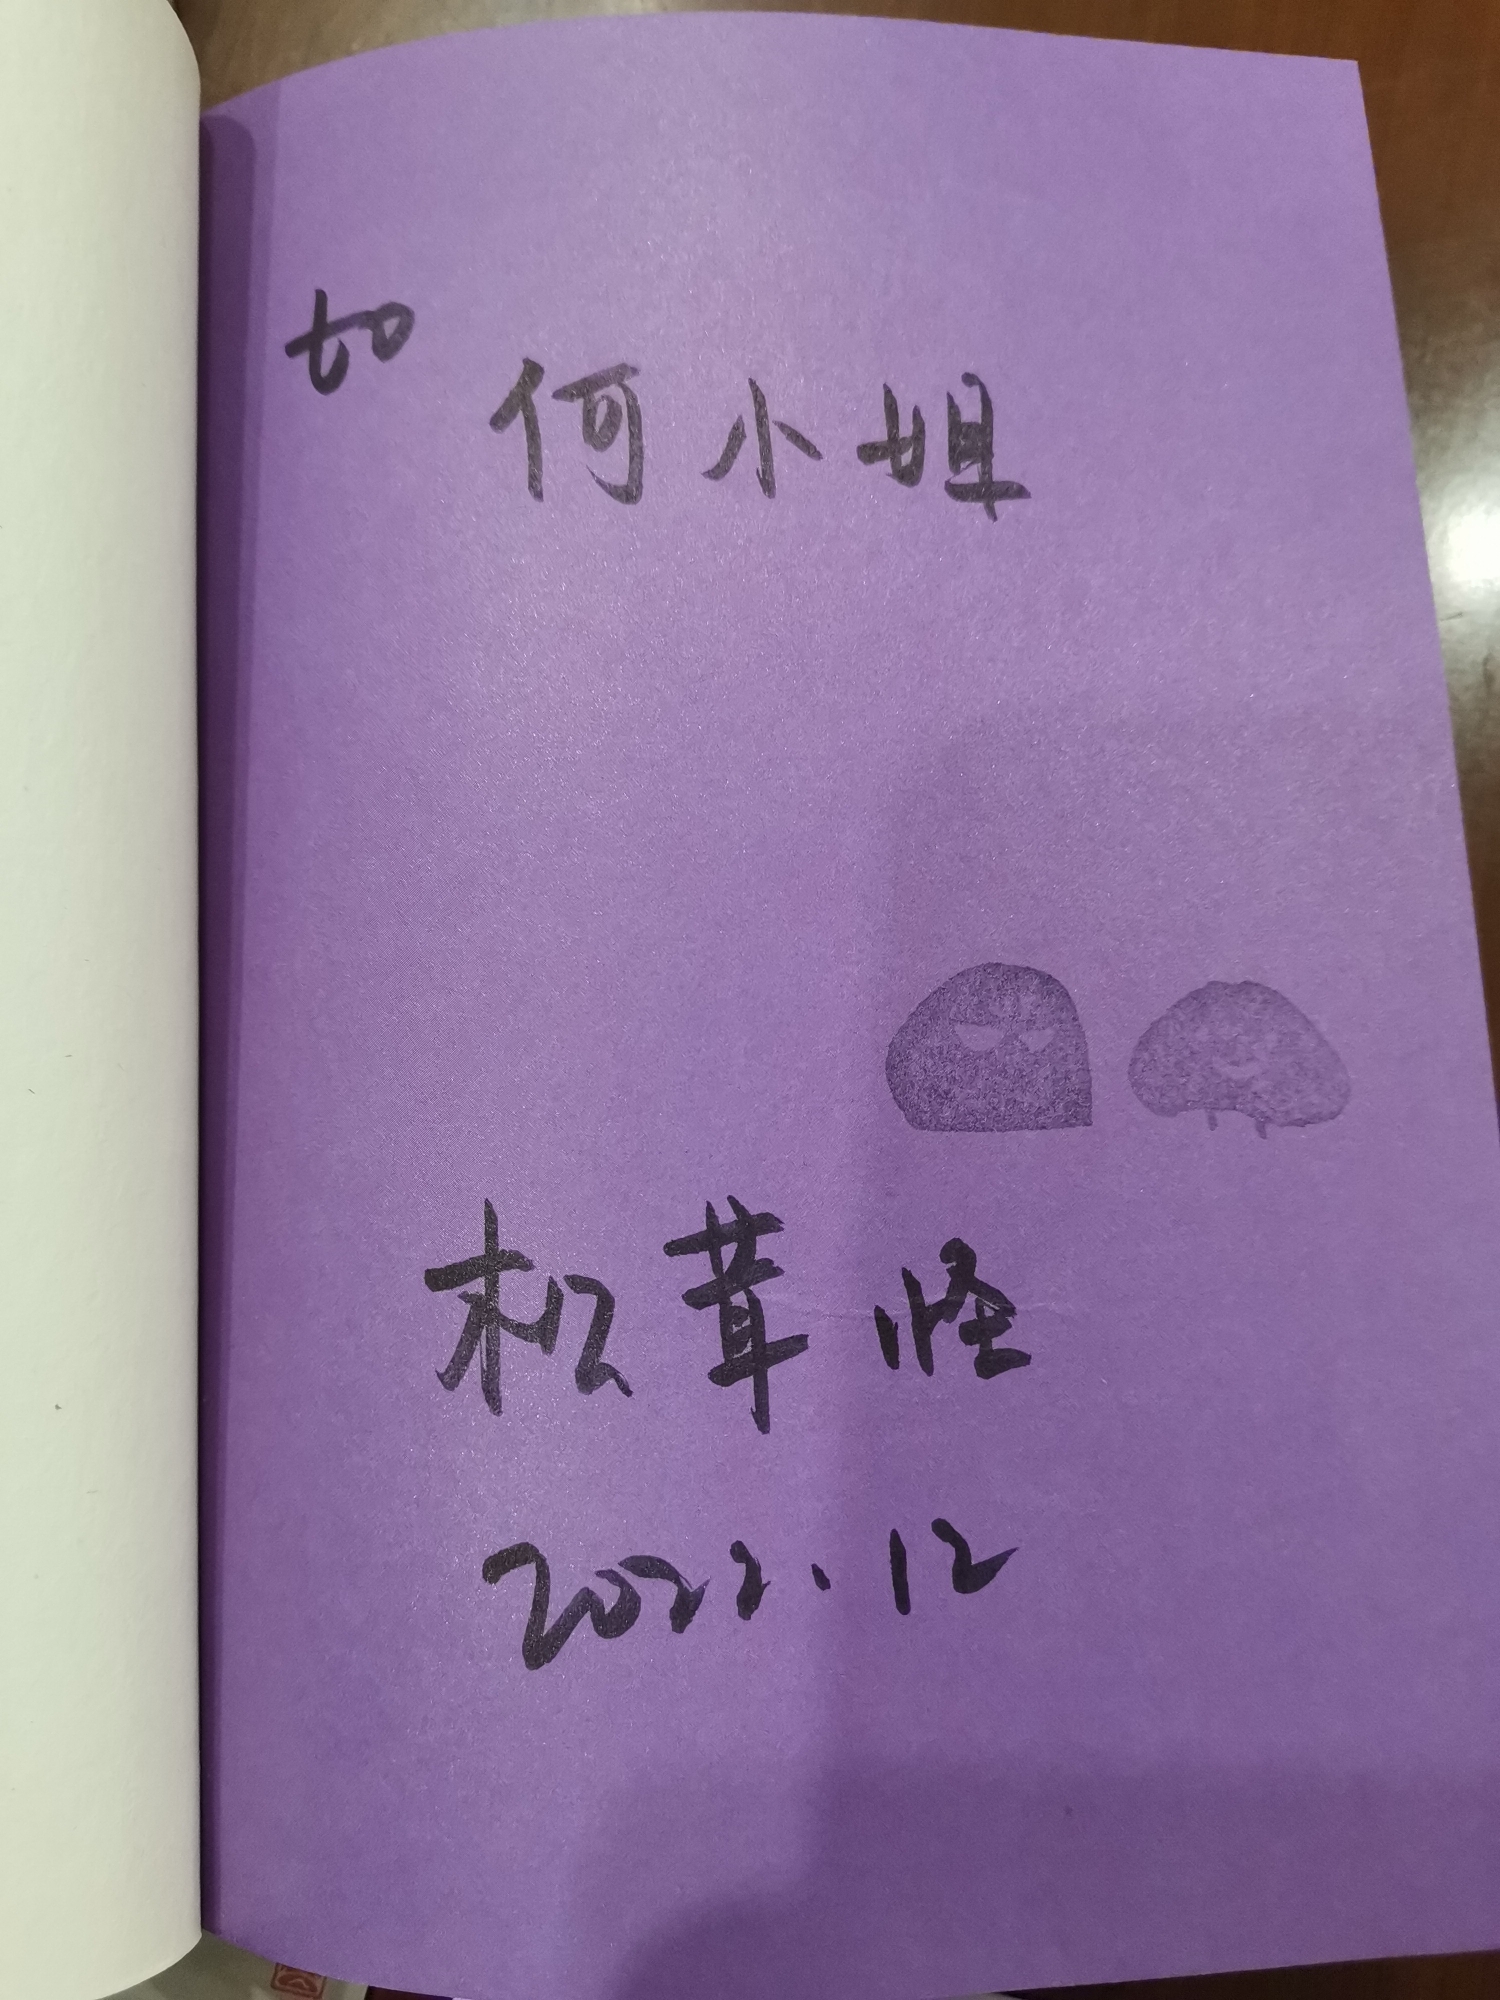 to
何小姐
松茸怪
2022.12